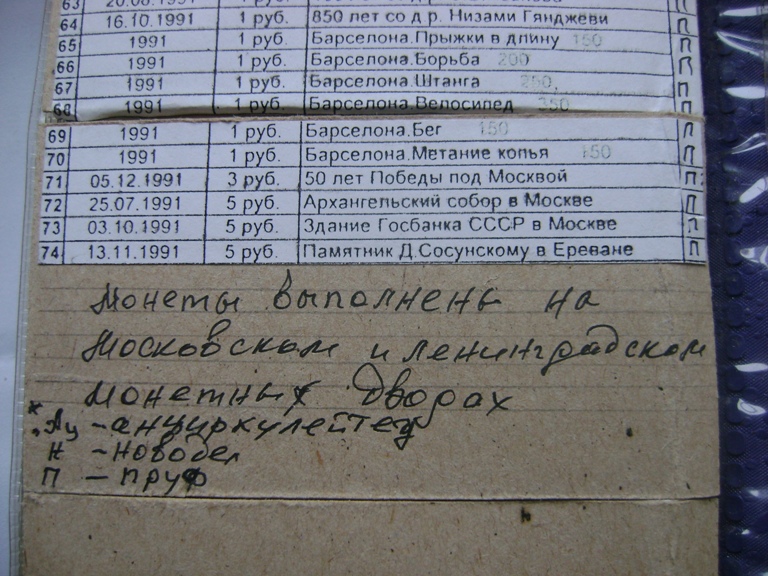 63 20.08.1991 1 руб.
64 16.10.1991 1 руб. 850 лет со д р. Низами Гянджеви П
65 1991 1 руб. Барселона.Прыжки в длину 150 П
66 1991 1 руб. Барселона.Борьба 200 П
67 1991 1 руб. Барселона.Штанга 250, П
68 1991 1 руб. Барселона.Велосипед 350 П
69 1991 1 руб. Барселона.Бег 150 П
70 1991 1 руб. Барселона.Метание копья 150 П
71 05.12.1991 3 руб. 50 лет Победы под Москвой П
72 25.07.1991 5 руб. Архангельский собор в Москве П
73 03.10.1991 5 руб. Здание Госбанка СССР в Москве П
74 13.11.1991 5 руб. Памятник Д.Сосунскому в Ереване П
Монеты выполнены на
Московском и Ленинградском
монетных дворах
* Ац - анциркулейтед
Н - новодел
П - пруф